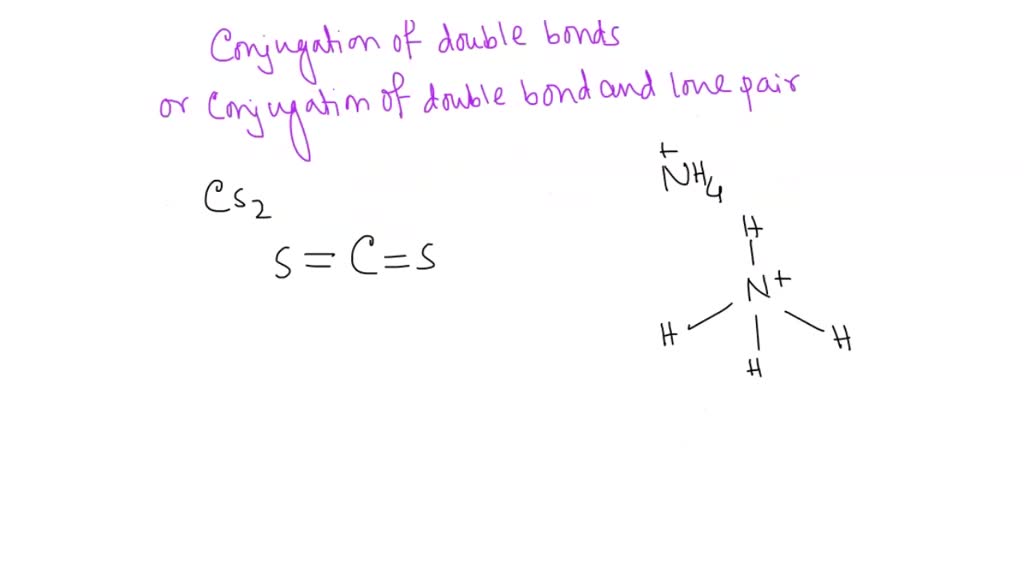 Conjugation of double bonds
or Conjugation of double bond and lone pair
Cs2
S=C=S
+
NH4
H
N+
H
H
H